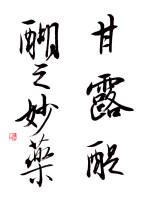 甘露醍
醐之妙藥